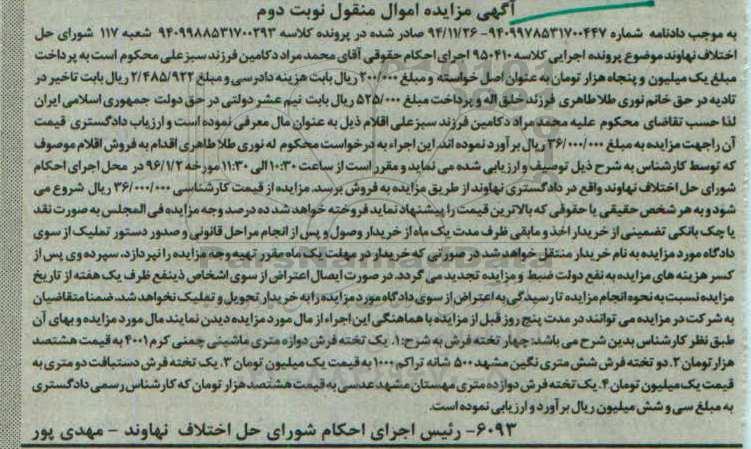 آگهی مزایده اموال منقول نوبت دوم
به موجب دادنامه شماره ۹۴۰۹۹۷۸۵۳۱۷۰۰۴۴۷- ۹۴/۱۱/۲۶ صادر شده در پرونده کلاسه ۹۴۰۹۹۸۸۵۳۱۷۰۰۲۹۳ شعبه ۱۱۷ شورای حل
اختلاف نهاوند موضوع پرونده اجرایی کلاسه ۹۵۰۴۱۰ اجرای احکام حقوقی آقای محمد مراد دکامین فرزند سبز علی محکوم است به پرداخت
مبلغ یک میلیون و پنجاه هزار تومان به عنوان اصل خواسته و مبلغ ۲۰۰/۰۰۰ ریال بابت هزینه دادرسی و مبلغ ۲/۴۸۵/۹۲۲ ریال بابت تاخیر در
تادیه در حق خانم نوری طلا طاهری فرزند خلق اله و پرداخت مبلغ ۵۲۵/۰۰۰ ریال بابت نیم عشر دولتی در حق دولت جمهوری اسلامی ایران
لذا حسب تقاضای محکوم علیه محمد مراد دکامین فرزند سبز علی اقلام ذیل به عنوان مال معرفی نموده است و ارزیاب دادگستری قیمت
آن را جهت مزایده به مبلغ ۳۶/۰۰۰/۰۰۰ ریال برآورد نموده اند، این اجراء به درخواست محکوم له نوری طلا طاهری اقدام به فروش اقلام موصوف
که توسط کارشناس به شرح ذیل توصیف و ارزیابی شده می نماید و مقرر است از ساعت ۱۰:۳۰ الی ۱۱:۳۰ مورخه ۹۶/۱/۲ در محل اجرای احکام
شورای حل اختلاف نهاوند واقع در دادگستری نهاوند از طریق مزایده به فروش برسد. مزایده از قیمت کارشناسی ۳۶/۰۰۰/۰۰۰ ریال شروع می
شود و به هر شخص حقیقی یا حقوقی که بالاترین قیمت را پیشنهاد نماید فروخته خواهد شد ده درصد وجه مزایده فی المجلس به صورت نقد
یا چک بانکی تضمینی از خریدار اخذ و مابقی ظرف مدت یک ماه از خریدار وصول و پس از انجام مراحل قانونی و صدور دستور تملیک از سوی
دادگاه مورد مزایده به نام خریدار منتقل خواهد شد در صورتی که خریدار در مهلت یک ماه مقرر تهیه وجه مزایده را نپردازد، سپرده وی پس از
کسر هزینه های مزایده به نفع دولت ضبط و مزایده تجدید می گردد. در صورت ایصال اعتراض از سوی اشخاص ذینفع ظرف یک هفته از تاریخ
مزایده نسبت به نحوه انجام مزایده تا رسیدگی به اعتراض از سوی دادگاه مورد مزایده را به خریدار تحویل و تملیک نخواهد شد. ضمنا متقاضیان
به شرکت در مزایده می توانند در مدت پنج روز قبل از مزایده با هماهنگی این اجراء از مال مورد مزایده دیدن نمایند مال مورد مزایده و بهای آن
طبق نظر کارشناس بدین شرح می باشد: چهار تخته فرش به شرح: ۱. یک تخته فرش دوازه متری ماشینی چمنی کرم ۴۰۰۱ به قیمت هشتصد
هزار تومان ۲. دو تخته فرش شش متری نگین مشهد ۵۰۰ شانه تراکم ۱۰۰۰ به قیمت یک میلیون تومان ۳. یک تخته فرش دستبافت دو متری به
قیمت یک میلیون تومان ۴. یک تخته فرش دوازده متری مهستان مشهد عدسی به قیمت هشتصد هزار تومان که کارشناس رسمی دادگستری
به مبلغ سی و شش میلیون ریال برآورد و ارزیابی نموده است.
۶۰۹۳- رئیس اجرای احکام شورای حل اختلاف نهاوند - مهدی پور